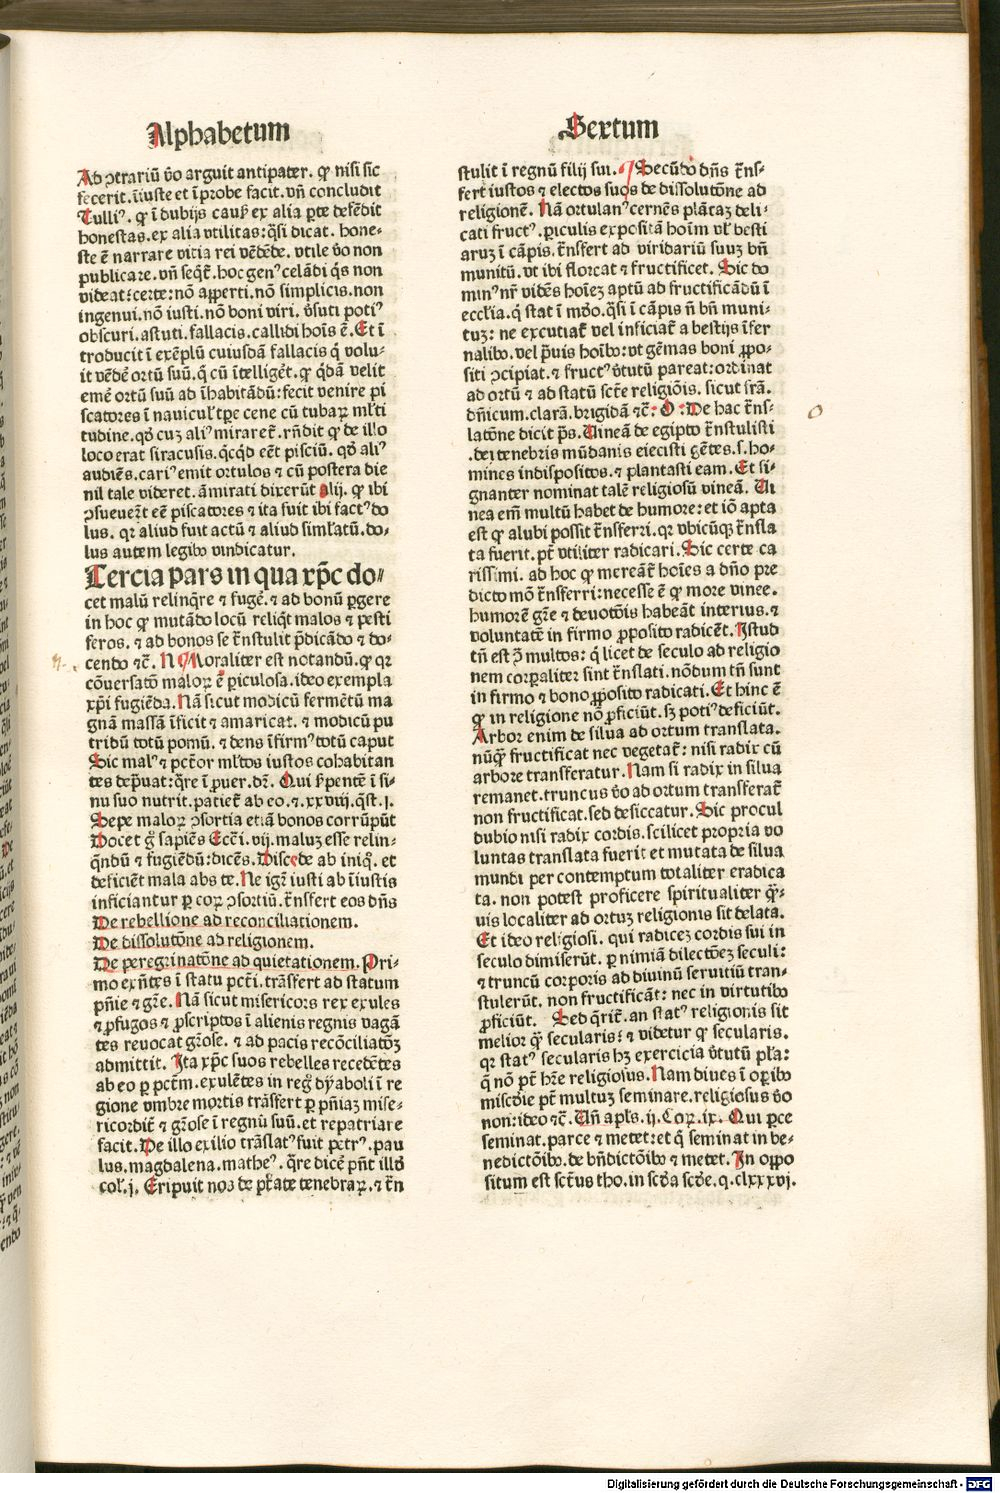 Alphabetum
Ad ɔtrariū v̄o arguit antipater. qꝛ nisi sic
fecerit. īiuste et īprobe facit. vn̄ concludit
Tulliꝰ. qꝛ ī dubijs causꝭ ex alia ꝑte defēdit
honestas. ex alia vtilitas: q̄si dicat. hone-
ste ē narrare vitia rei vēdēde. vtile v̄o non
publicare. vn̄ seqt̄. hoc genꝰ celādi q̄s non
videat: certe: nō aꝑerti. nō simplicis. non
ingenui. nō iusti. nō boni viri. v̄suti potiꝰ
obscuri. astuti. fallacis. callidi hoīs ē. Et ī
troducit ī exēplū cuiusdā fallacis q̄ volu-
it vēdē ortū suū. q̄ cū ītelligēt. qꝛ q̄dā velit
emē ortū suū ad īhabitādū: fecit venire pi
scatores ī nauiculꝭ tꝑe cene cū tubaꝝ ml̄ti
tudine. qd̓ cuz aliꝰ miraret̄. rn̄dit qꝛ de illo
loco erat siracusis. qcqd eēt pisciū. qd̓ aliꝰ
audiēs. cariꝰ emit ortulos ⁊ cū postera die
nil tale videret. āmirati dixerūt alij. qꝛ ibi
ɔsueuert̄ eē piscatores ⁊ ita fuit ibi factꝰ do
lus. qꝛ aliud fuit actū ⁊ aliud siml̄atū. do-
lus autem legibꝰ vindicatur.
Tercia pars in qua xp̄c do-
cet malū relinq̄re ⁊ fugē. ⁊ ad bonū ꝑgere
in hoc qꝛ mutādo locū reliq̄t malos ⁊ pesti
feros. ⁊ ad bonos se t̄nstulit p̄dicādo ⁊ do-
cendo ⁊c̄. N Moraliter est notandū. qꝛ qꝛ
cōuersatō maloꝝ ē ꝑiculosa. ideo exempla
xp̄i fugiēda. Nā sicut modicū fermētū ma
gnā massā īficit ⁊ amaricat. ⁊ modicū pu
tridū totū pomū. ⁊ dens īfirmꝰ totū caput
Sic malꝰ ⁊ pctōr ml̄tos iustos cohabitan
tes dep̄uat: q̄re ī ꝓuer. dr̄. Qui ẜpentē ī si-
nu suo nutrit. patiet̄ ab eo. ⁊. xxviij. qst̄. j.
Sepe maloꝝ ɔsortia etiā bonos corrūpūt
Docet g̊ sapiēs Ecc̄i. vij. maluz esse relin-
q̄ndū ⁊ fugiēdū: dicēs. Discede ab iniqͦ. et
deficiēt mala abs te. Ne igr̄ iusti ab īiustis
inficiantur ꝑ coꝝ ɔsortiū. t̄nsfert eos dn̄s
De rebellione ad reconciliationem.
De dissolutōne ad religionem.
De peregrinatōne ad quietationem. Pri-
mo exn̄tes ī statu pctī. trāsfert ad statum
pn̄ie ⁊ gr̄e. Nā sicut misericors rex exules
⁊ ꝓfugos ⁊ ꝓscriptos ī alienis regnis vagā
tes reuocat gr̄ose. ⁊ ad pacis recōciliatōz
admittit. Ita xp̄c suos rebelles recedētes
ab eo ꝑ pctm̄. exulētes in reg̊ dyaboli ī re
gione vmbre mortis trāsfert ꝑ pn̄iaz mise-
ricordit̄ ⁊ gr̄ose ī regnū suū. et repatriare
facit. De illo exilio trāslatꝰ fuit petrꝰ. pau
lus. magdalena. matheꝰ. q̄re dicē pn̄t illd̓
col̄. j. Eripuit nos de p̄tate tenebraꝝ. ⁊ t̄n
Sextum
stulit ī regnū filij sui. Secūdo dn̄s t̄ns-
fert iustos ⁊ electos suos de dissolutōne ad
religionē. Nā ortulanꝰ cernēs plātaz deli-
cati fructꝰ. ꝑiculis expositā hoīm vl̓ besti
aruz ī cāpis. t̄nsfert ad viridariū suuz bn̄
munitū. vt ibi florcat ⁊ fructificet. Sic do
minꝰ nr̄ vidēs hoīez aptū ad fructificādū ī
eccl̄ia. q̄ stat ī mūdo. q̄si ī cāpis n̄ bn̄ muni-
tuz: ne excutiat̄ vel inficiat̄ a bestijs īfer
nalibꝰ. vel p̄uis hoībꝰ: vt gēmas boni ꝓpo-
siti ɔcipiat. ⁊ fructꝰ v̓tutū pareat: ordinat
ad ortū ⁊ ad statū scte̅ religiōis. sicut frā.
dn̄icum. clarā. brigidā ⁊c̄. O De hac t̄ns-
latōne dicit ps̄. Vineā de egipto t̄nstulisti
.de tenebris mūdanis eiecisti gētes. s. ho-
mines indispositos. ⁊ plantasti eam. Et si-
gnanter nominat talē religiosū vineā. Vi
nea em̄ multū habet de humore: et iō apta
est qꝛ alubi possit t̄nsferri. qꝛ vbicūqꝫ t̄nsla
ta fuerit. pt̄ vtiliter radicari. Sic certe ca
rissimi. ad hoc qꝛ mereāt̄ hoīes a dn̄o pre
dicto mō t̄nsferri: necesse ē qꝛ more vinee.
humorē gr̄e ⁊ deuotōis habeāt interius. ⁊
voluntatē in firmo ꝓposito radicēt. Istud
tn̄ est ꝯ̄ multos: q̄ licet de seculo ad religio
nem corꝑaliter sint t̄nslati. nōdum tn̄ sunt
in firmo ⁊ bono ꝓposito radicati. Et hinc ē
qꝛ in religione nō ꝓficiūt. sꝫ potiꝰ deficiūt.
Arbor enim de silua ad ortum translata.
nūqꝫ fructificat nec vegetat̄: nisi radix cū
arbore transferatur. Nam si radix in silua
remanet. truncus v̄o ad ortum transferat̄
non fructificat. sed desiccatur. Sic procul
dubio nisi radix cordis. scilicet propria vo
luntas translata fuerit et mutata de silua
mundi per contemptum totaliter eradica
ta. non potest proficere spiritualiter qꝫ-
uis localiter ad ortuz religionis sit delata.
Et ideo religiosi. qui radicez cordis sui in
seculo dimiserūt. ꝑ nimiā dilectōez seculi:
⁊ truncū corporis ad diuinū seruitiū tran-
stulerūt. non fructificāt: nec in virtutibꝰ
ꝓficiūt. Sed q̄rit̄. an statꝰ religionis sit
melior qꝫ secularis: ⁊ videtur qꝛ secularis.
qꝛ statꝰ secularis hꝫ exercicia v̓tutū pl̄a:
q̄ nō pt̄ hr̄e religiosus. Nam diues ī oꝑibꝰ
misc̄die pt̄ multuz seminare. religiosus v̄o
non: ideo ⁊c̄. Vn̄ apl̄s. ij. Coꝝ. ix. Qui ꝑce
seminat. parce ⁊ metet: et q̄ seminat in be-
nedictōibꝰ. de bn̄dictōibꝰ ⁊ metet. In oppo
situm est sct̄us tho. in scd̄a scd̄e. q. clxxxvj.
Digitalisierung gefördert durch die Deutsche Forschungsgemeinschaft - DFG